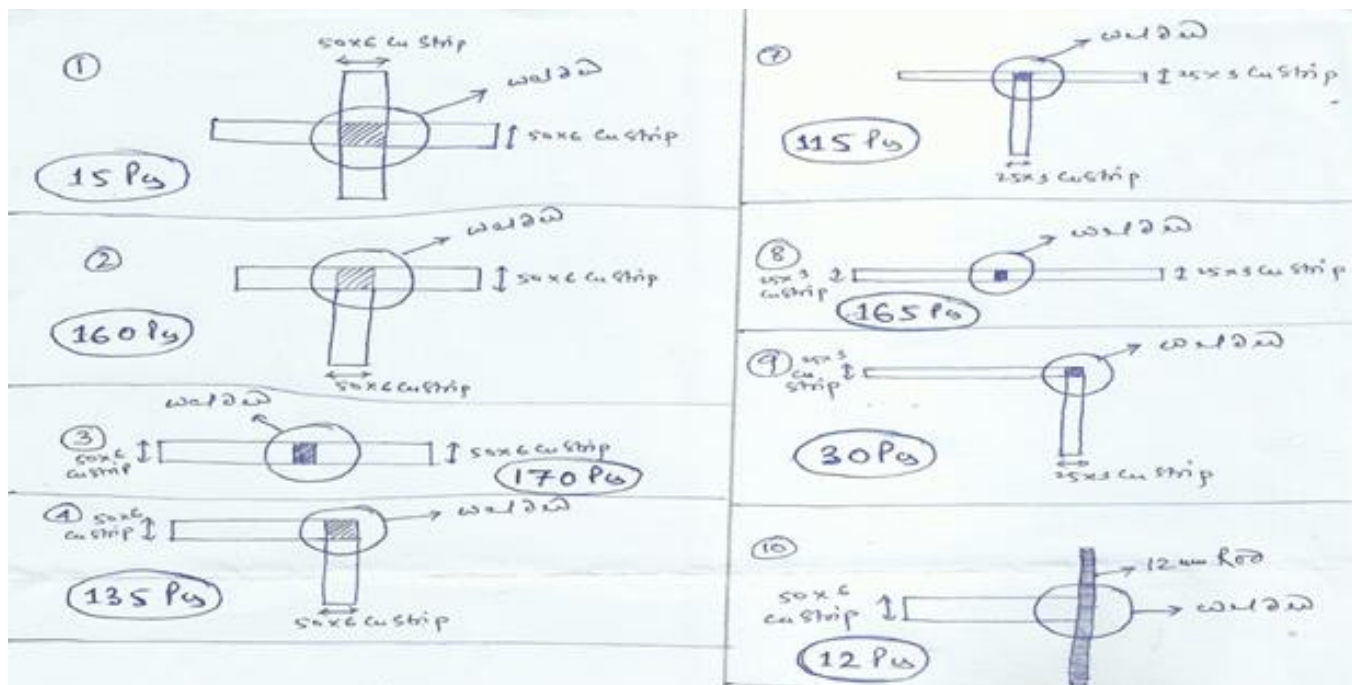 1
50x6 Cu Strip
weld
50x6 Cu Strip
15 Pcs
2
weld
50x6 Cu Strip
160 Pcs
50x6 Cu Strip
weld
3
50x6
Cu Strip
50x6 Cu Strip
170 Pcs
4
50x6
Cu Strip
weld
135 Pcs
50x6 Cu Strip
7
weld
25x3 Cu Strip
115 Pcs
25x3 Cu Strip
8
weld
25x3
Cu Strip
25x3 Cu Strip
165 Pcs
9
25x3
Cu
Strip
weld
30 Pcs
25x3 Cu Strip
10
12 mm Rod
50x6
Cu Strip
weld
12 Pcs